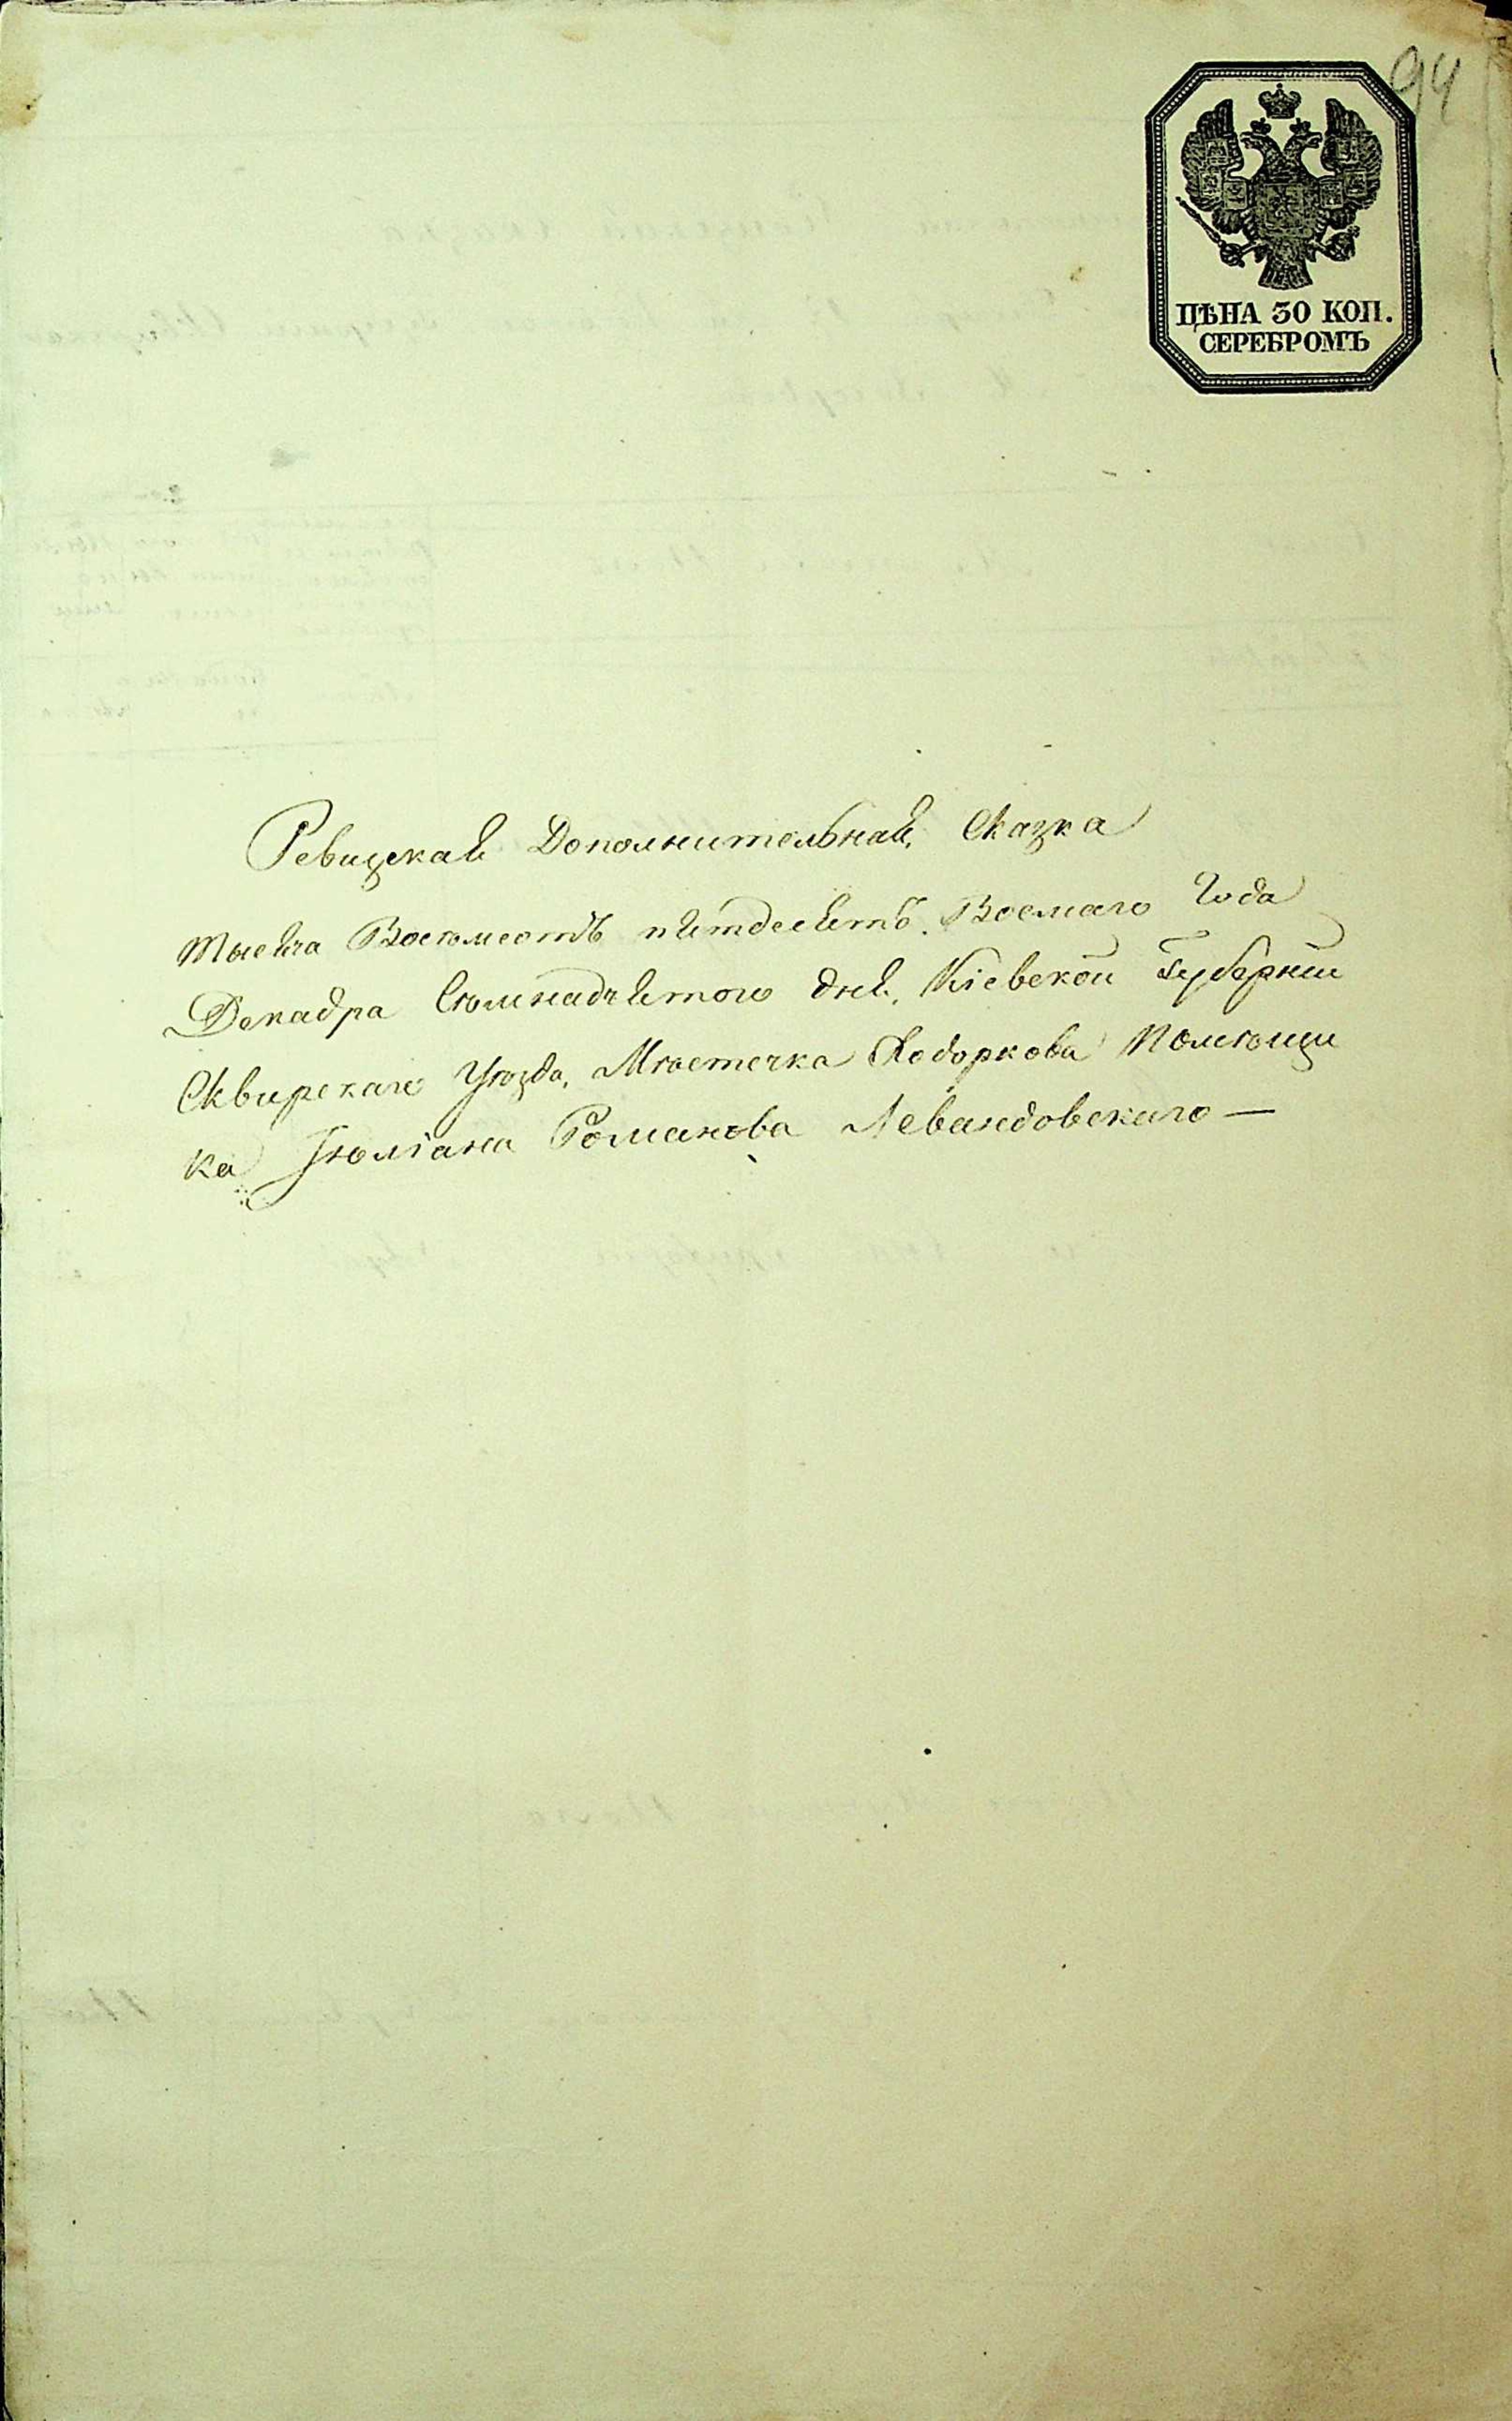 94
ЦѢНА 30 КОП.
СЕРЕБРОМЪ
Ревизская Дополнительная, Сказка
тысяча Восѣмсотъ пятдесятъ. Восмаго Года
Декадра Сѣмнадчятого дня, Кіевской Губерніи
Сквирскаго Уѣзда, Мѣстечка Ходоркова Помѣщи
ка Іюліана Романова Левандовскаго —